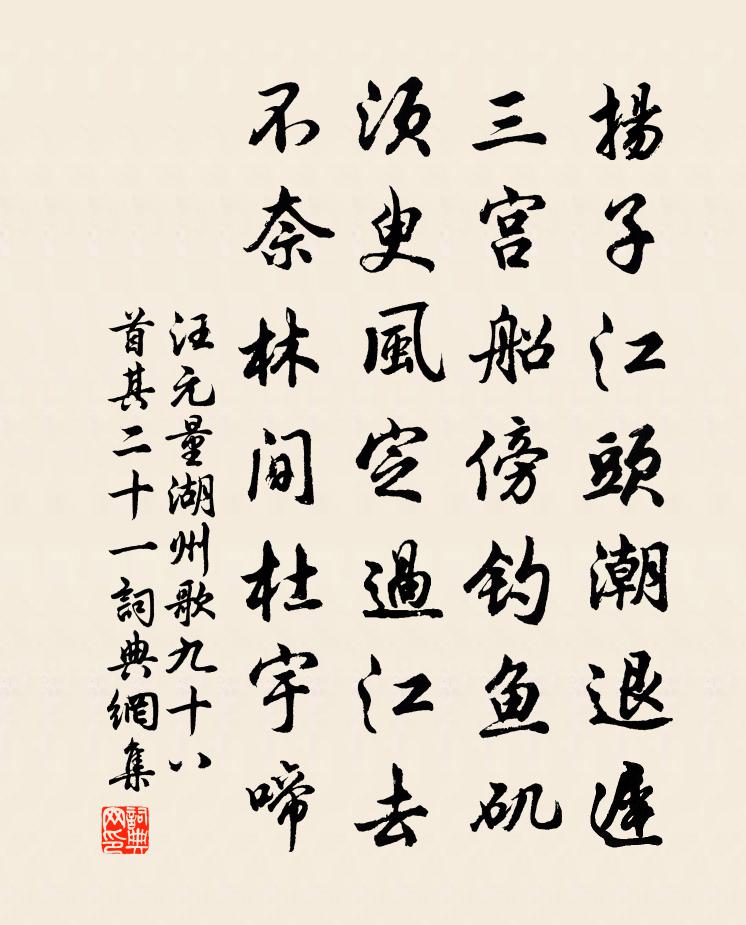 揚子江頭潮退遲
三宮船傍釣魚矶
須臾風定過江去
不奈林間杜宇啼
汪元量湖州歌九十八
首其二十一詞典網集
詞典
网印